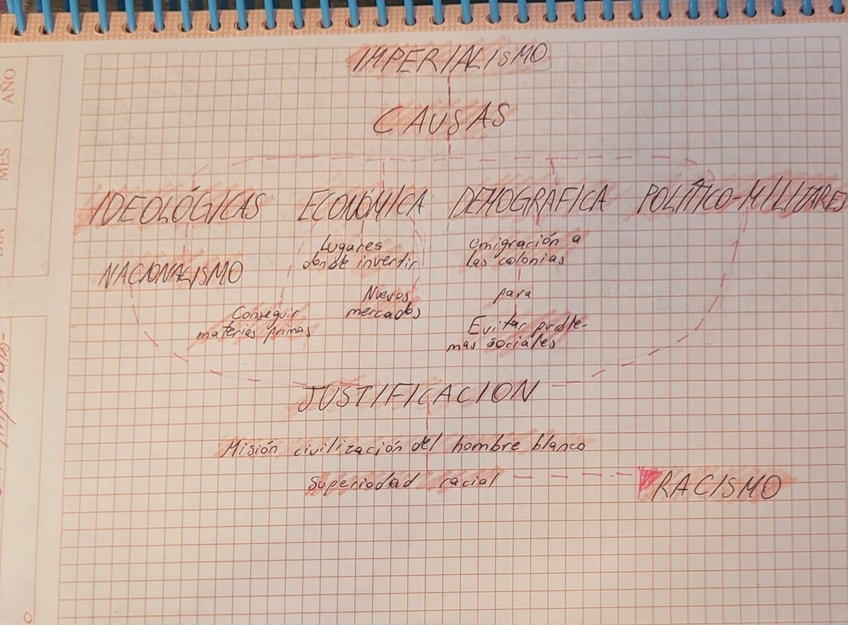 IMPERIALISMO
CAUSAS
IDEOLÓGICAS ECONÓMICA DEMOGRAFICA POLÍTICO-MILITARES
NACIONALISMO
Lugares
donde invertir
Nuevos
mercados
Conseguir
materias primas
emigración a
las colonias
para
Evitar proble-
mas sociales
JUSTIFICACION
Misión civilización del hombre blanco
Superiodad racial
RACISMO
AÑO
MES
DIA